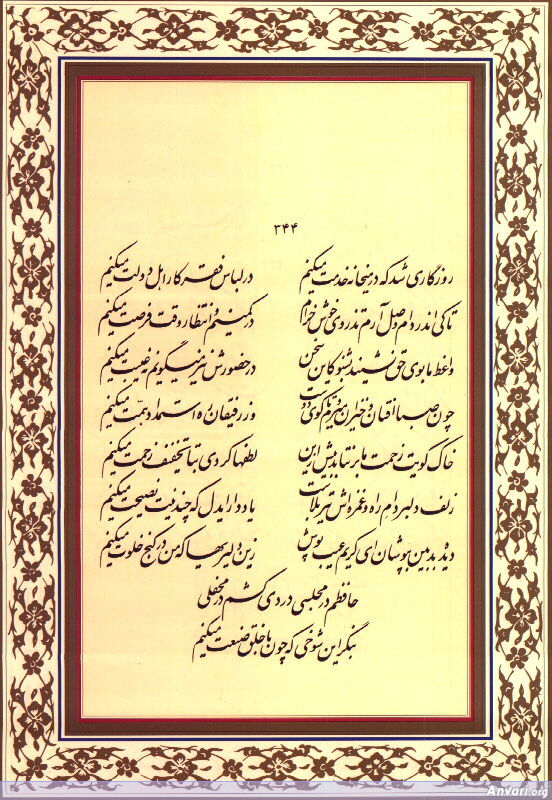 ۳۴۴
روزگاری شد که در میخانه خدمت میکنم در لباس فقر کار اهل دولت میکنم
تا کی اندر دام وصل آرم تذروی خوش خرام در کمینم و انتظار وقت فرصت میکنم
واعظ ما بوی حق نشنید بشنو کاین سخن در حضورش نیز میگویم نه غیبت میکنم
چون صبا افتان و خیزان میروم تا کوی دوست وز رفیقان ره استمداد همت میکنم
خاک کویت زحمت ما برنتابد بیش ازین لطفها کردی بتا تخفیف زحمت میکنم
زلف دلبر دام راه و غمزه‌اش تیر بلاست یاد دار ایدل که چندینت نصیحت میکنم
دیده بدبین بپوشان ای کریم عیب پوش زین دلیریها که من در کنج خلوت میکنم
حافظم در مجلسی دردی کشم در محفلی
بنگر این شوخی که چون با خلق صنعت میکنم
Anvari.org